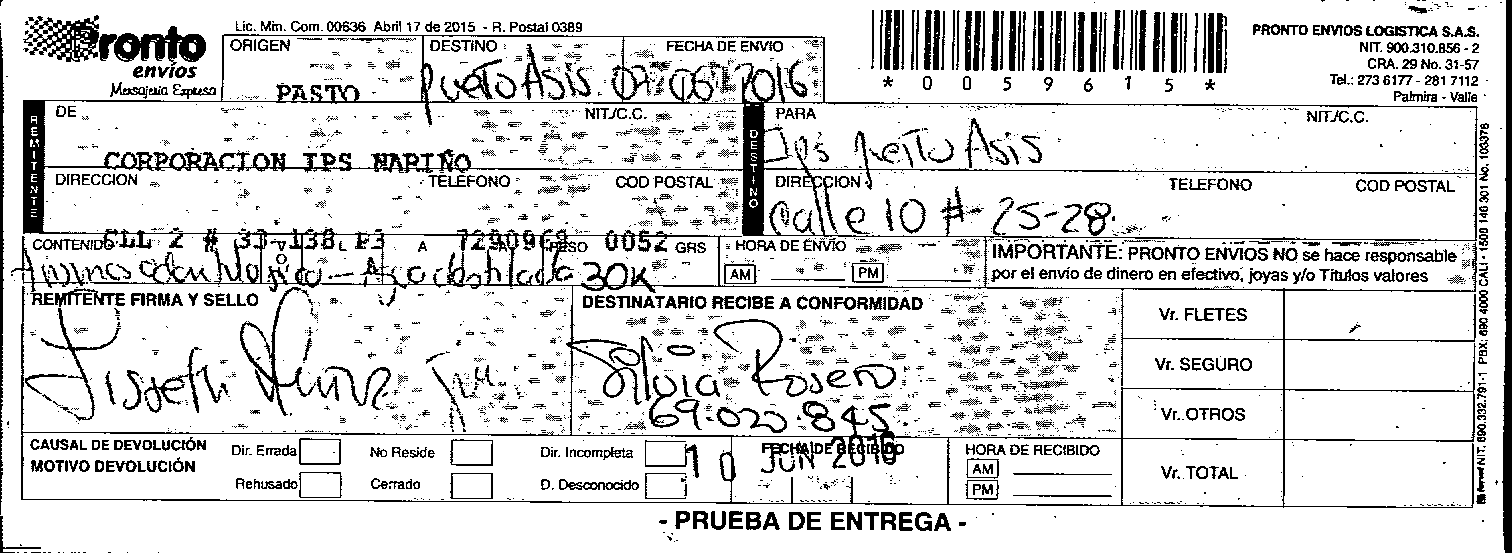 Pronto
envíos
Mensajería Expresa
Lic. Min. Com. 00636 Abril 17 de 2015 - R. Postal 0389
ORIGEN DESTINO FECHA DE ENVIO
PASTO Puerto Asis 07 06 2016
* 0 0 5 9 6 1 5 *
PRONTO ENVIOS LOGISTICA S.A.S.
NIT. 900.310.856 - 2
CRA. 29 No. 31-57
Tel.: 273 6177 - 281 7112
Palmira - Valle
REMITENTE
DE NIT./C.C.
CORPORACION IPS NARIÑO
DIRECCION TELÉFONO COD POSTAL
CLL 2 # 33-138 P3 7290969 0052
DESTINO
PARA NIT./C.C.
Ips puerto Asis
DIRECCION TELEFONO COD POSTAL
Calle 10 # 25-28.
CONTENIDO V O L A PESO GRS
30K
HORA DE ENVIO
AM PM
IMPORTANTE: PRONTO ENVIOS NO se hace responsable
por el envío de dinero en efectivo, joyas y/o Títulos valores
REMITENTE FIRMA Y SELLO
Lisseth
DESTINATARIO RECIBE A CONFORMIDAD
Silvia Rosero
69.020.845
Vr. FLETES
Vr. SEGURO
Vr. OTROS
Vr. TOTAL
CAUSAL DE DEVOLUCIÓN
MOTIVO DEVOLUCIÓN
Dir. Errada No Reside Dir. Incompleta
Rehusado Cerrado D. Desconocido
FECHA DE RECIBIDO
10 JUN 2016
HORA DE RECIBIDO
AM
PM
- PRUEBA DE ENTREGA -